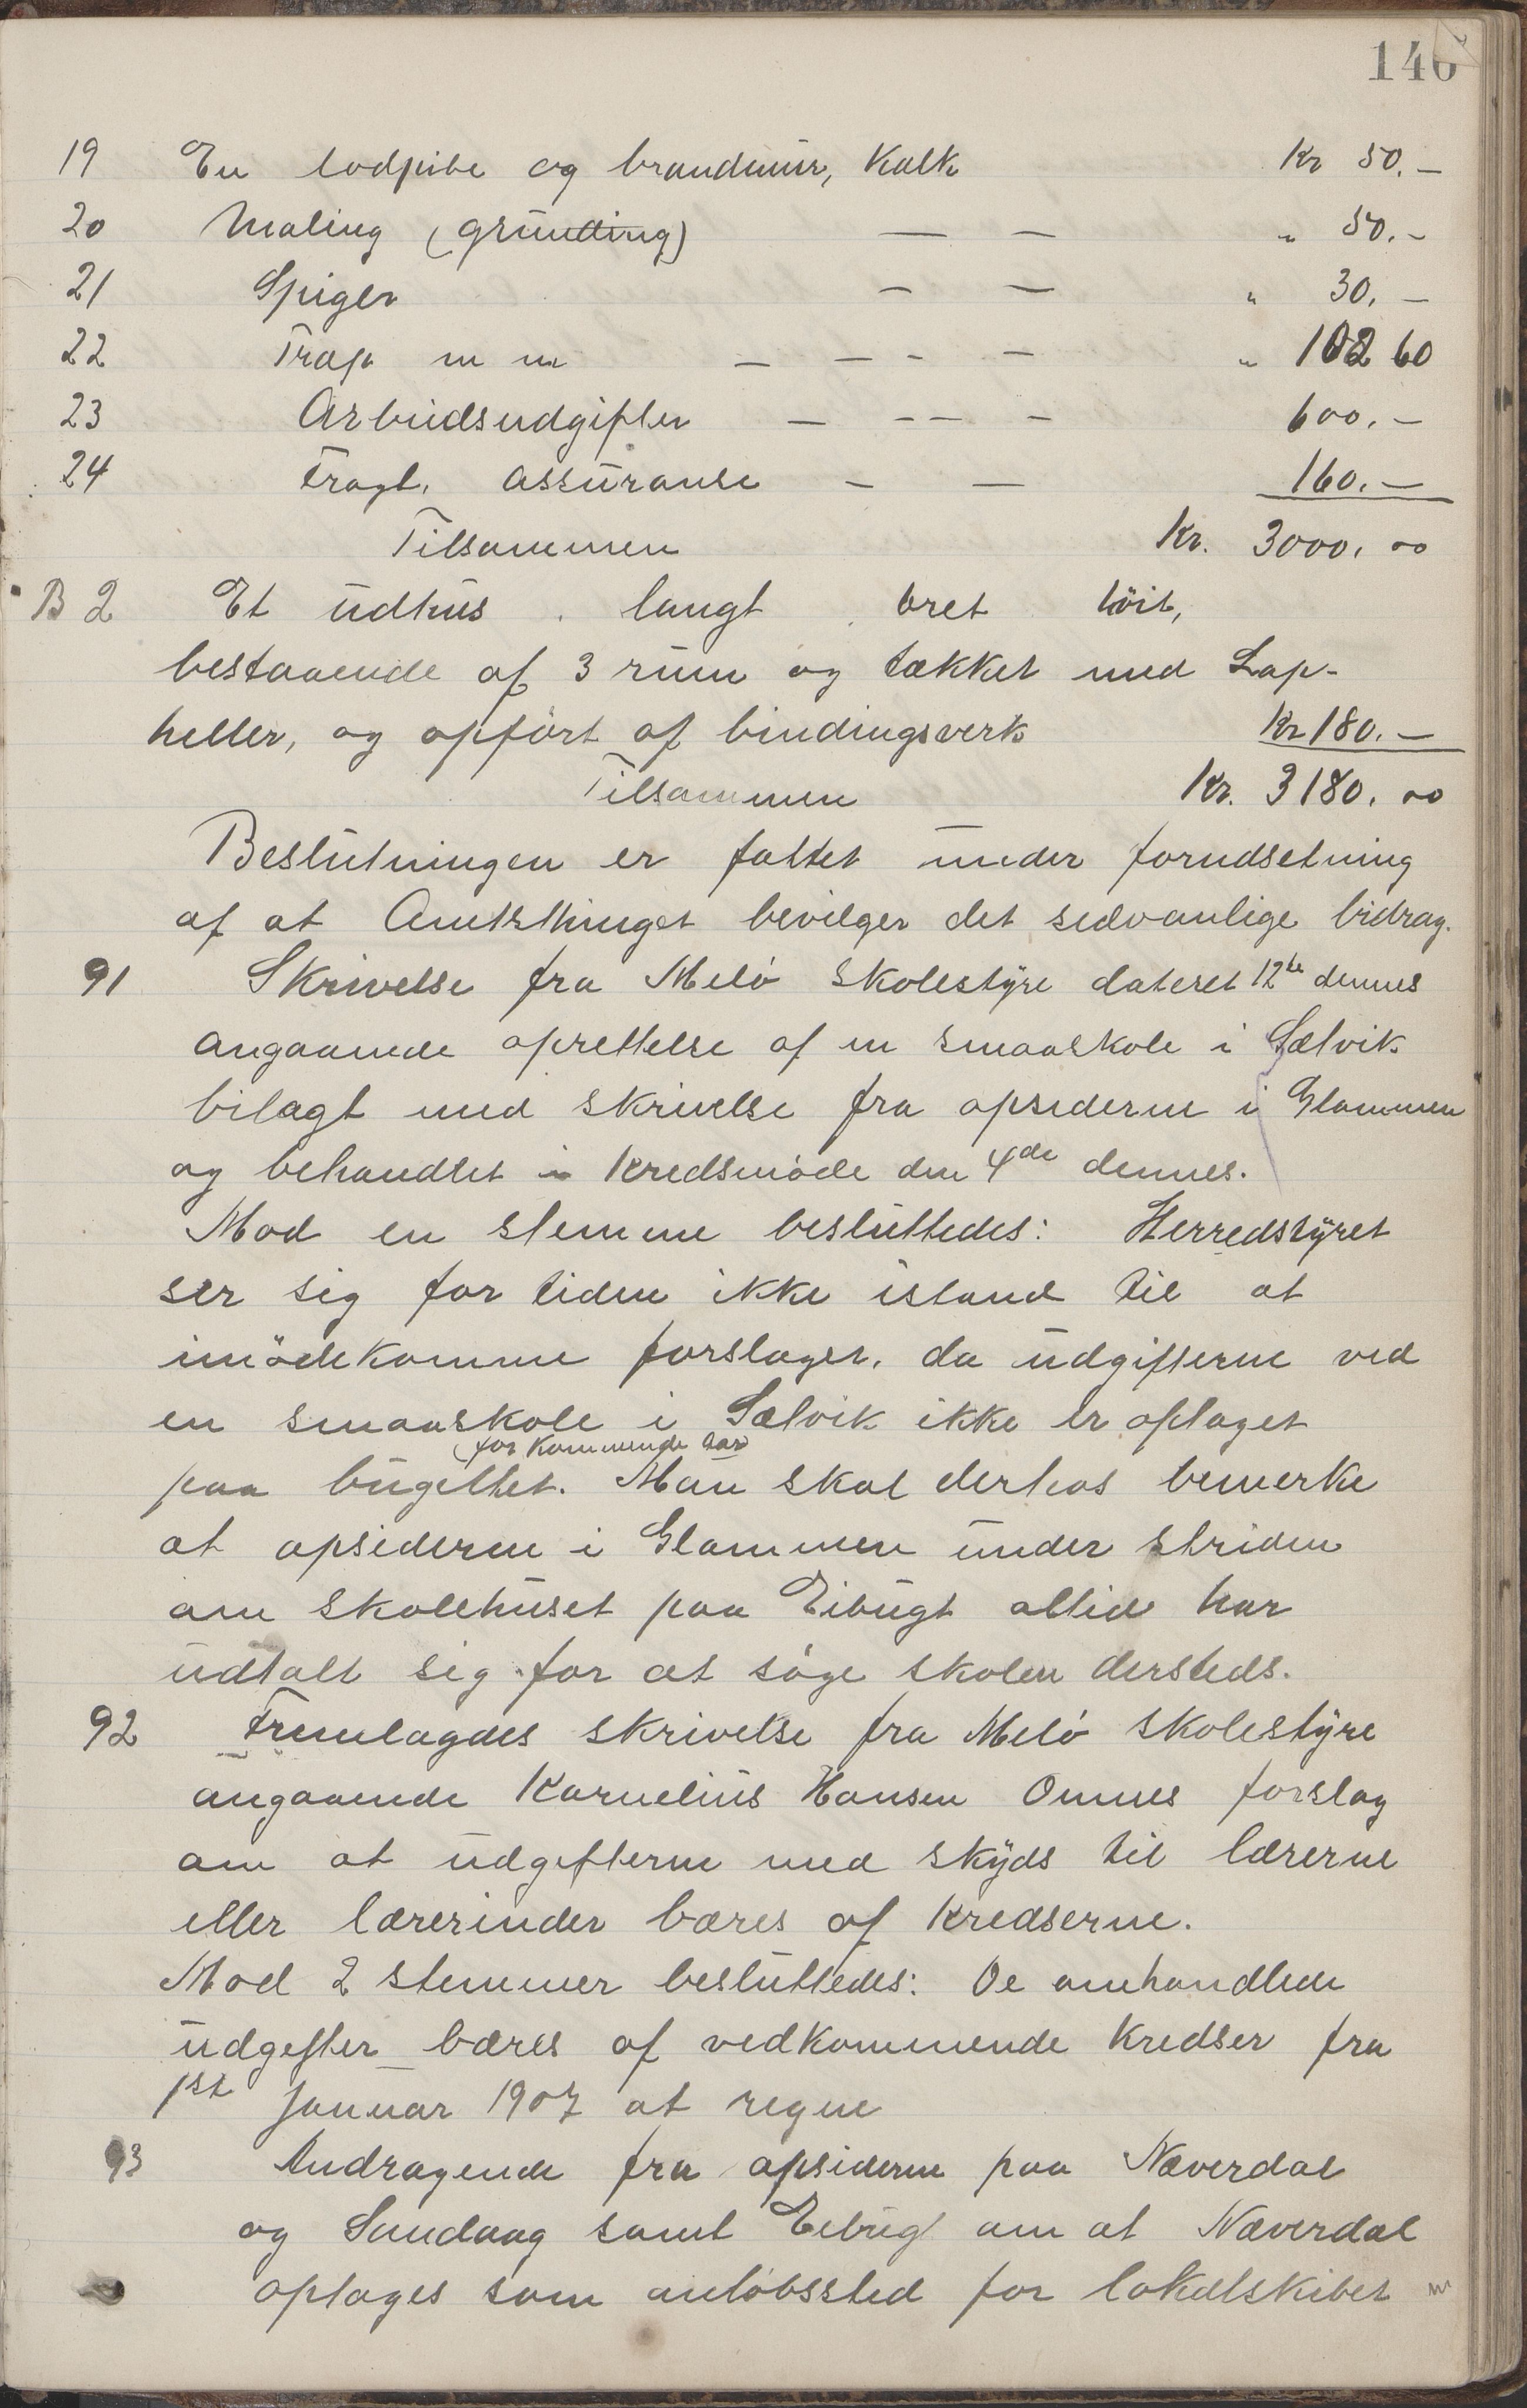 146
19 En lodpibe og brandmur, Kalk Kr 50.—
20 Maling (grunding) — — " 50.—
21 Spiger — — " 30.—
22 Trap m m — — - — " 102 60
23 Arbeidsudgifter — - — - 600.—
24 Fragt, assuranse — — 160.—
Tilsammen Kr. 3000.00
B 2 Et udhus . langt . bret höit,
bestaaende af 3 rum og tækket med Lap-
heller, og opført af bindingsverk Kr 180.—
Tilsammen Kr. 3180.00
Beslutningen er fattet under forudsetning
af at Amtsthinget bevilger det sedvanlige bidrag.
91 Skrivelse fra Melø Skolestyre dateret 12te dennes
angaaende oprettelse af en smaaskole i Sælvik
bilagt med skrivelse fra opsiderne i Glammen
og behandlet i Kredsmøde den 4de dennes.
Mod en stemme besluttedes: Herredstyret
ser sig for tiden ikke istand til at
imödekomme forslaget, da udgifterne ved
en smaaskole i Sælvik ikke er optaget
(for kommende aar)
paa bugettet. Man skal derhos bemerke
at opsiderne i Glammen under striden
om skolehuset paa Eibugt altid har
udtalt sig for at søge skolen dersteds.
92 Fremlagdes skrivelse fra Melø Skolestyre
angaaende Karnelius Hansen Onnes forslag
om at udgifterne med skyds til lærerne
eller lærerinder bæres af Kredserne.
Mod 2 stemmer besluttedes: De omhandlede
udgifter bæres af vedkommende Kredser fra
1ste Januar 1907 at regne
93 Andragende fra opsiderne paa Næverdal
og Sandaag samt Eibugt om at Næverdal
optages som anløbssted for lokalskibet